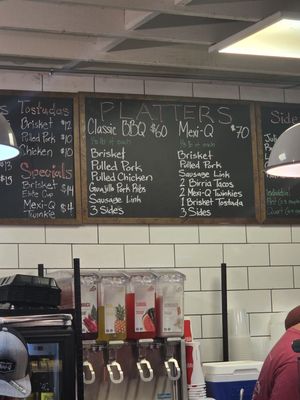 Tostadas
Brisket $12
Pulled Pork $10
Chicken $10
Specials
Brisket $14
Elite Cup
Mexi-Q $4
Twinkie
PLATTERS
Classic BBQ $60
Brisket
Pulled Pork
Pulled Chicken
Sausage Link
3 Sides
Mexi-Q $70
Brisket
Pulled Pork
Sausage Link
2 Birria Tacos
2 Mexi-Q Twinkies
1 Brisket Tostada
3 Sides
Side